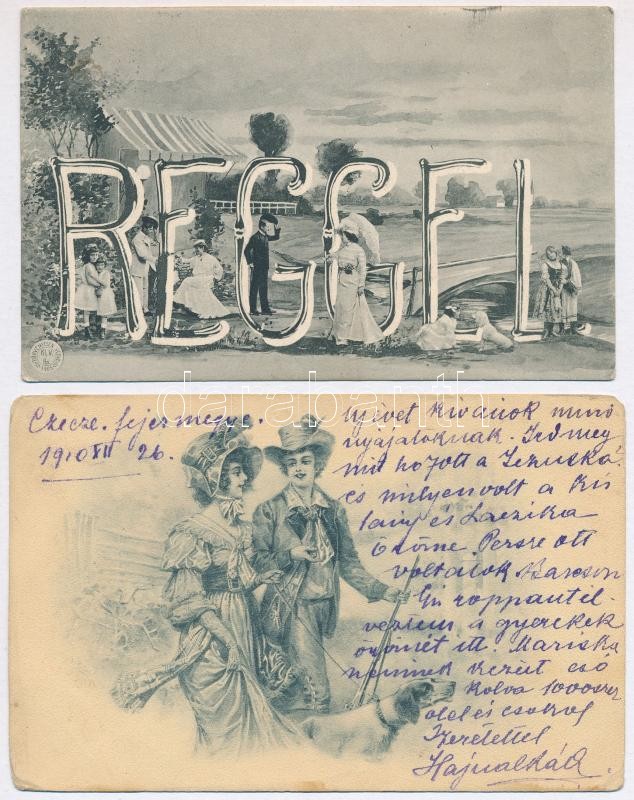 REGGEL
darabanth
Czecze. fejérmegye.
1910 XII 26.
ujévet kivánok mind
nyájatoknak. Ird meg
mit hozott a Jézuská
és milyen volt a kis
lány és Laczika
öröme. Persze ott
voltatok
Én roppant él-
veztem a gyerekek
örömét itt. Mariska
néninek kezeit csó
kolva 1000szer
ölel és csokol
Szeretettel